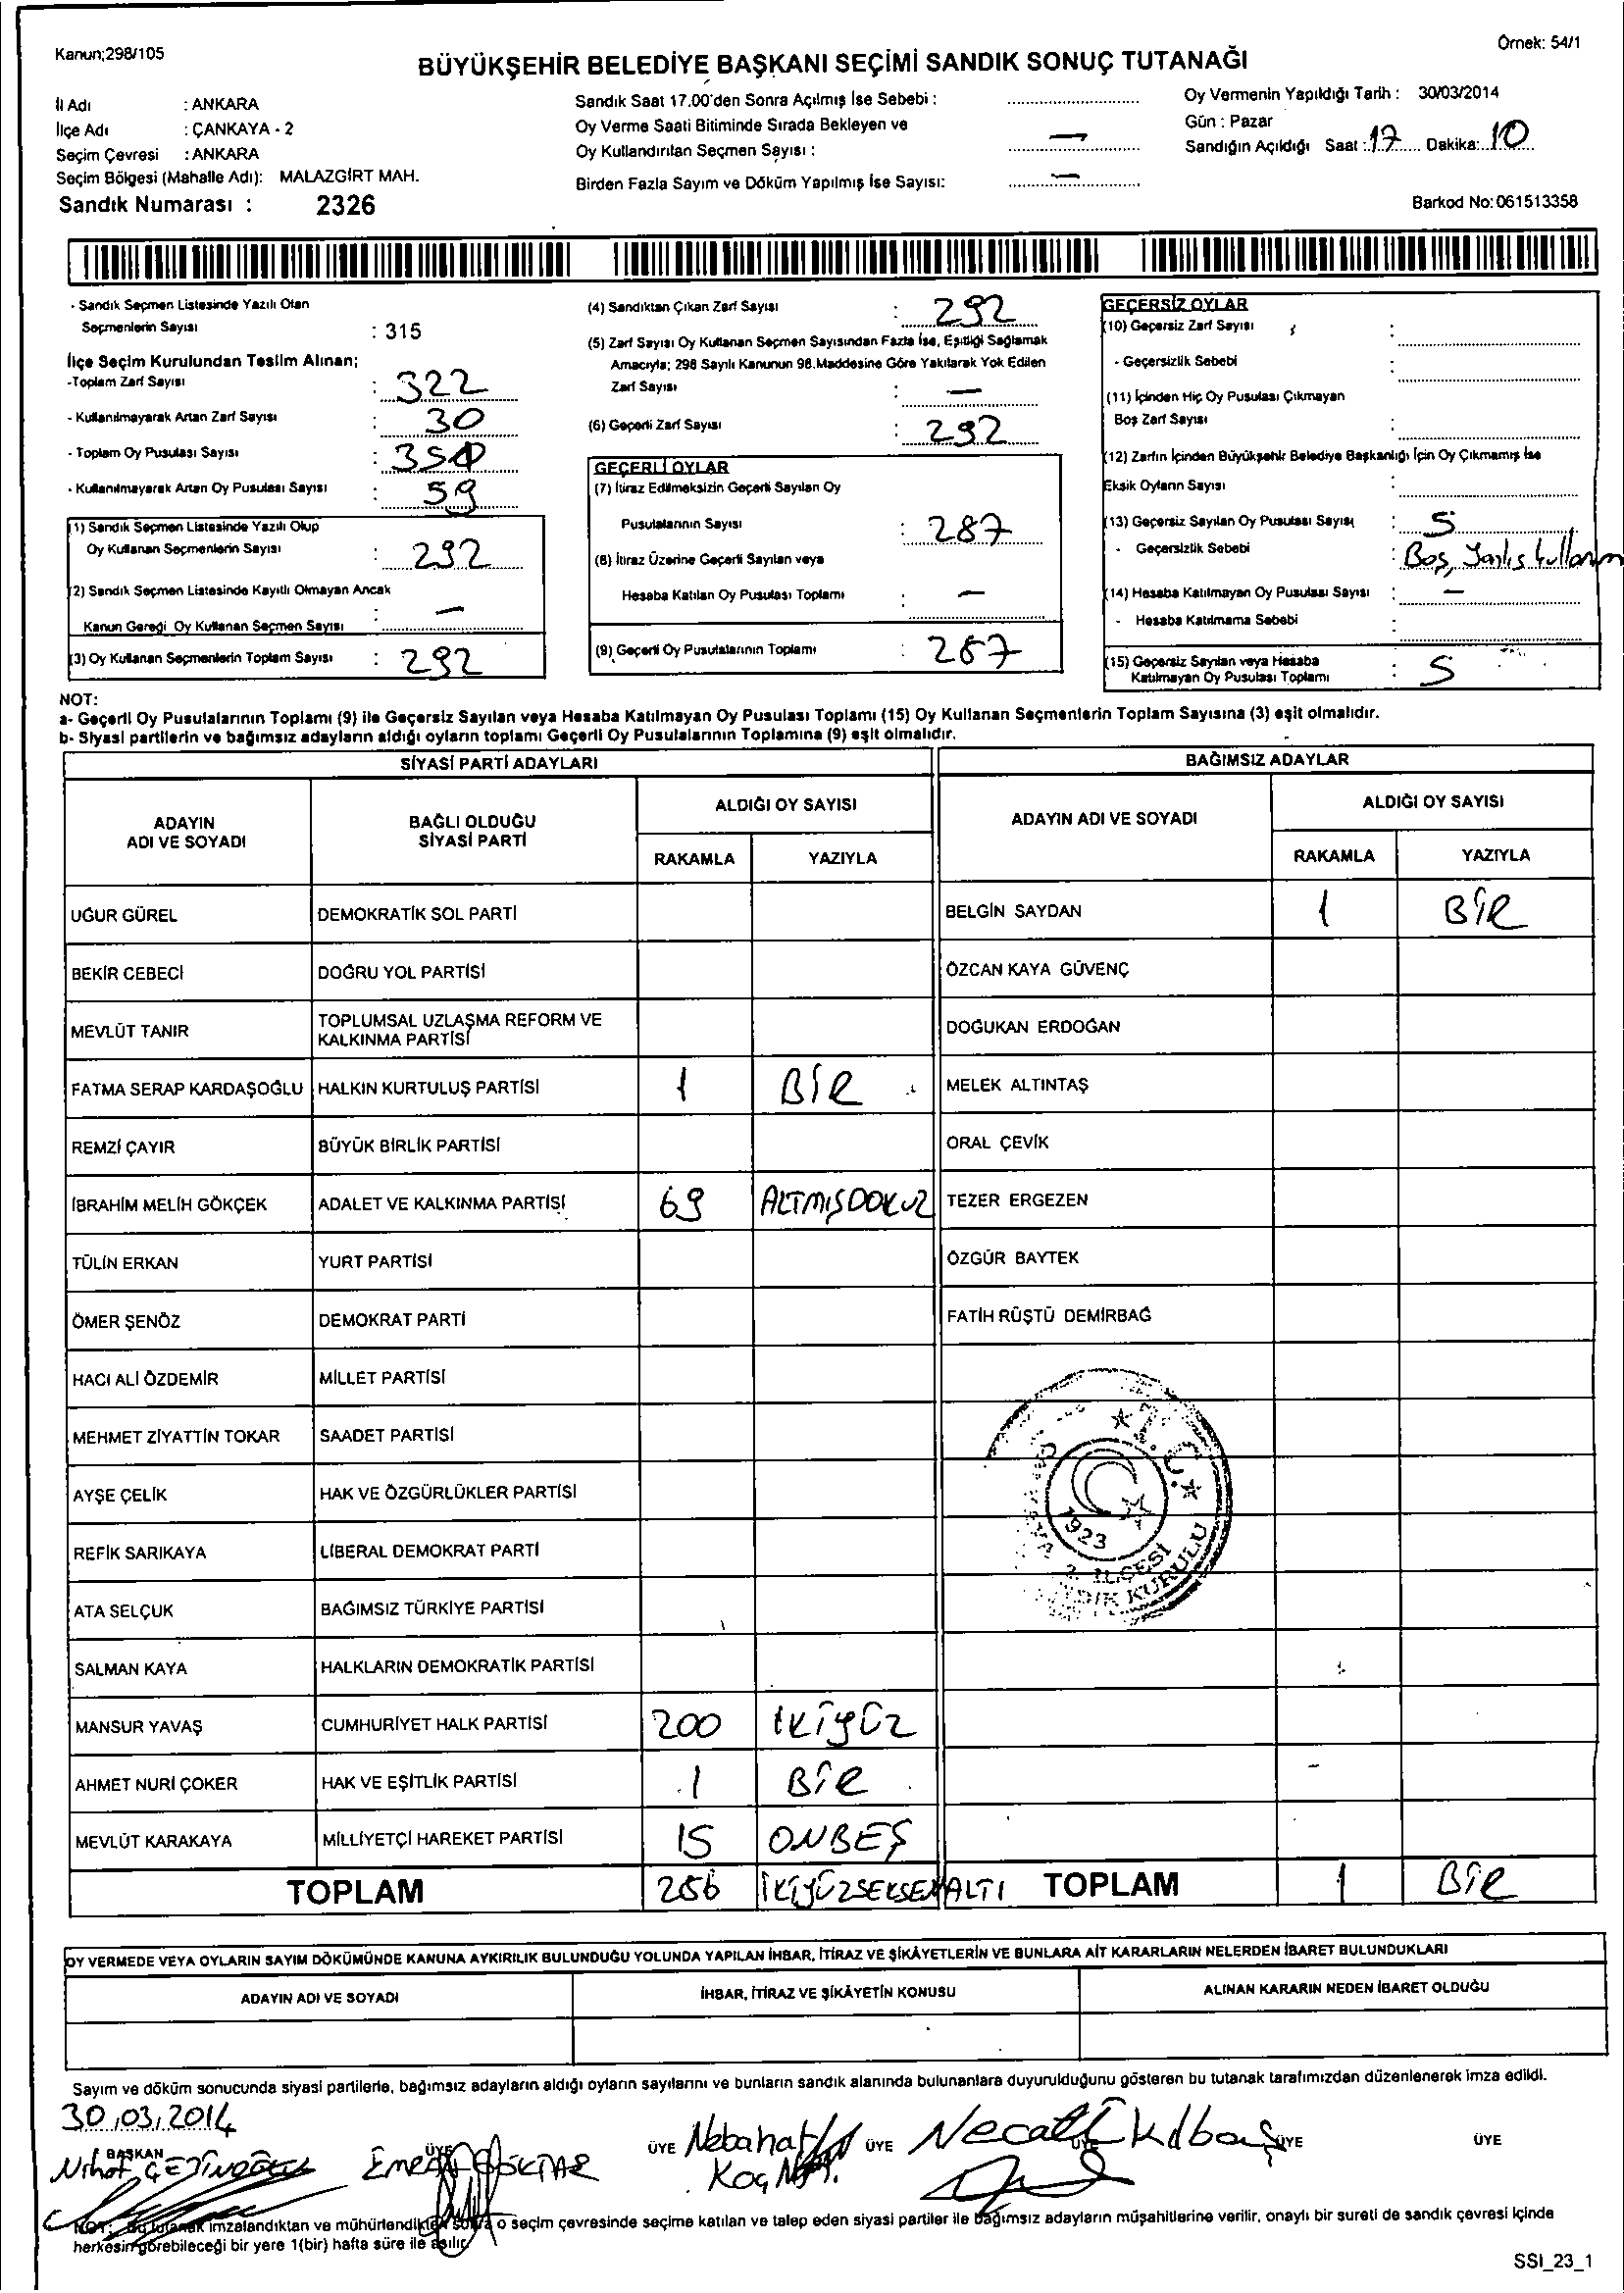 Kanun;298/105
Örnek: 54/1
BÜYÜKŞEHİR BELEDİYE BAŞKANI SEÇİMİ SANDIK SONUÇ TUTANAĞI
İl Adı : ANKARA
İlçe Adı : ÇANKAYA - 2
Seçim Çevresi : ANKARA
Seçim Bölgesi (Mahalle Adı): MALAZGİRT MAH.
Sandık Numarası : 2326
Sandık Saat 17.00'den Sonra Açılmış İse Sebebi :
Oy Verme Saati Bitiminde Sırada Bekleyen ve
Oy Kullandırılan Seçmen Sayısı : —
Birden Fazla Sayım ve Döküm Yapılmış İse Sayısı: —
Oy Vermenin Yapıldığı Tarih : 30/03/2014
Gün : Pazar
Sandığın Açıldığı Saat : 17 Dakika: 10
Barkod No: 061513358
- Sandık Seçmen Listesinde Yazılı Olan
Seçmenlerin Sayısı : 315
İlçe Seçim Kurulundan Teslim Alınan;
-Toplam Zarf Sayısı : 322
- Kullanılmayarak Artan Zarf Sayısı : 30
- Toplam Oy Pusulası Sayısı :
- Kullanılmayarak Artan Oy Pusulası Sayısı : 59
(1) Sandık Seçmen Listesinde Yazılı Olup
Oy Kullanan Seçmenlerin Sayısı : 292
(2) Sandık Seçmen Listesinde Kayıtlı Olmayan Ancak
Kanun Gereği Oy Kullanan Seçmen Sayısı : —
(3) Oy Kullanan Seçmenlerin Toplam Sayısı : 292
(4) Sandıktan Çıkan Zarf Sayısı : 292
(5) Zarf Sayısı Oy Kullanan Seçmen Sayısından Fazla İse, Eşitliği Sağlamak
Amacıyla; 298 Sayılı Kanunun 98.Maddesine Göre Yakılarak Yok Edilen
Zarf Sayısı : —
(6) Geçerli Zarf Sayısı : 292
GEÇERLİ OYLAR
(7) İtiraz Edilmeksizin Geçerli Sayılan Oy
Pusulalarının Sayısı : 287
(8) İtiraz Üzerine Geçerli Sayılan veya
Hesaba Katılan Oy Pusulası Toplamı : —
(9) Geçerli Oy Pusulalarının Toplamı : 287
GEÇERSİZ OYLAR
(10) Geçersiz Zarf Sayısı :
- Geçersizlik Sebebi :
(11) İçinden Hiç Oy Pusulası Çıkmayan
Boş Zarf Sayısı :
(12) Zarfın İçinden Büyükşehir Belediye Başkanlığı İçin Oy Çıkmamış İse
Eksik Oyların Sayısı :
(13) Geçersiz Sayılan Oy Pusulası Sayısı : 5
- Geçersizlik Sebebi : Boş, Yanlış kullanım
(14) Hesaba Katılmayan Oy Pusulası Sayısı : —
- Hesaba Katılmama Sebebi :
(15) Geçersiz Sayılan veya Hesaba
Katılmayan Oy Pusulası Toplamı : 5
NOT:
a- Geçerli Oy Pusulalarının Toplamı (9) ile Geçersiz Sayılan veya Hesaba Katılmayan Oy Pusulası Toplamı (15) Oy Kullanan Seçmenlerin Toplam Sayısına (3) eşit olmalıdır.
b- Siyasi partilerin ve bağımsız adayların aldığı oyların toplamı Geçerli Oy Pusulalarının Toplamına (9) eşit olmalıdır.
SİYASİ PARTİ ADAYLARI
ADAYIN ADI VE SOYADI
BAĞLI OLDUĞU SİYASİ PARTİ
ALDIĞI OY SAYISI
RAKAMLA YAZIYLA
UĞUR GÜREL DEMOKRATİK SOL PARTİ
BEKİR CEBECİ DOĞRU YOL PARTİSİ
MEVLÜT TANIR TOPLUMSAL UZLAŞMA REFORM VE
KALKINMA PARTİSİ
FATMA SERAP KARDAŞOĞLU HALKIN KURTULUŞ PARTİSİ 1 BİR
REMZİ ÇAYIR BÜYÜK BİRLİK PARTİSİ
İBRAHİM MELİH GÖKÇEK ADALET VE KALKINMA PARTİSİ 69 ALTMIŞDOKUZ
TÜLİN ERKAN YURT PARTİSİ
ÖMER ŞENÖZ DEMOKRAT PARTİ
HACI ALİ ÖZDEMİR MİLLET PARTİSİ
MEHMET ZİYATTİN TOKAR SAADET PARTİSİ
AYŞE ÇELİK HAK VE ÖZGÜRLÜKLER PARTİSİ
REFİK SARIKAYA LİBERAL DEMOKRAT PARTİ
ATA SELÇUK BAĞIMSIZ TÜRKİYE PARTİSİ
SALMAN KAYA HALKLARIN DEMOKRATİK PARTİSİ
MANSUR YAVAŞ CUMHURİYET HALK PARTİSİ 200 İKİYÜZ
AHMET NURİ ÇOKER HAK VE EŞİTLİK PARTİSİ 1 BİR
MEVLÜT KARAKAYA MİLLİYETÇİ HAREKET PARTİSİ 15 ONBEŞ
TOPLAM 286 İKİYÜZSEKSENALTI
BAĞIMSIZ ADAYLAR
ADAYIN ADI VE SOYADI
ALDIĞI OY SAYISI
RAKAMLA YAZIYLA
BELGİN SAYDAN 1 BİR
ÖZCAN KAYA GÜVENÇ
DOĞUKAN ERDOĞAN
MELEK ALTINTAŞ
ORAL ÇEVİK
TEZER ERGEZEN
ÖZGÜR BAYTEK
FATİH RÜŞTÜ DEMİRBAĞ
T.C.
1923
2. İLÇESİ
SANDIK KURULU
TOPLAM 1 BİR
OY VERMEDE VEYA OYLARIN SAYIM DÖKÜMÜNDE KANUNA AYKIRILIK BULUNDUĞU YOLUNDA YAPILAN İHBAR, İTİRAZ VE ŞİKÂYETLERİN VE BUNLARA AİT KARARLARIN NELERDEN İBARET BULUNDUKLARI
ADAYIN ADI VE SOYADI İHBAR, İTİRAZ VE ŞİKÂYETİN KONUSU ALINAN KARARIN NEDEN İBARET OLDUĞU
Sayım ve döküm sonucunda siyasi partilerle, bağımsız adayların aldığı oyların sayılarını ve bunların sandık alanında bulunanlara duyurulduğunu gösteren bu tutanak tarafımızdan düzenlenerek imza edildi.
30.03.2014
BAŞKAN ÜYE ÜYE ÜYE ÜYE ÜYE ÜYE
Nihat
Nebahat
Koç
Necati
NOT: Bu tutanak imzalandıktan ve mühürlendikten sonra o seçim çevresinde seçime katılan ve talep eden siyasi partiler ile bağımsız adayların müşahitlerine verilir, onaylı bir sureti de sandık çevresi içinde
herkesin görebileceği bir yere 1(bir) hafta süre ile asılır.
SSI_23_1